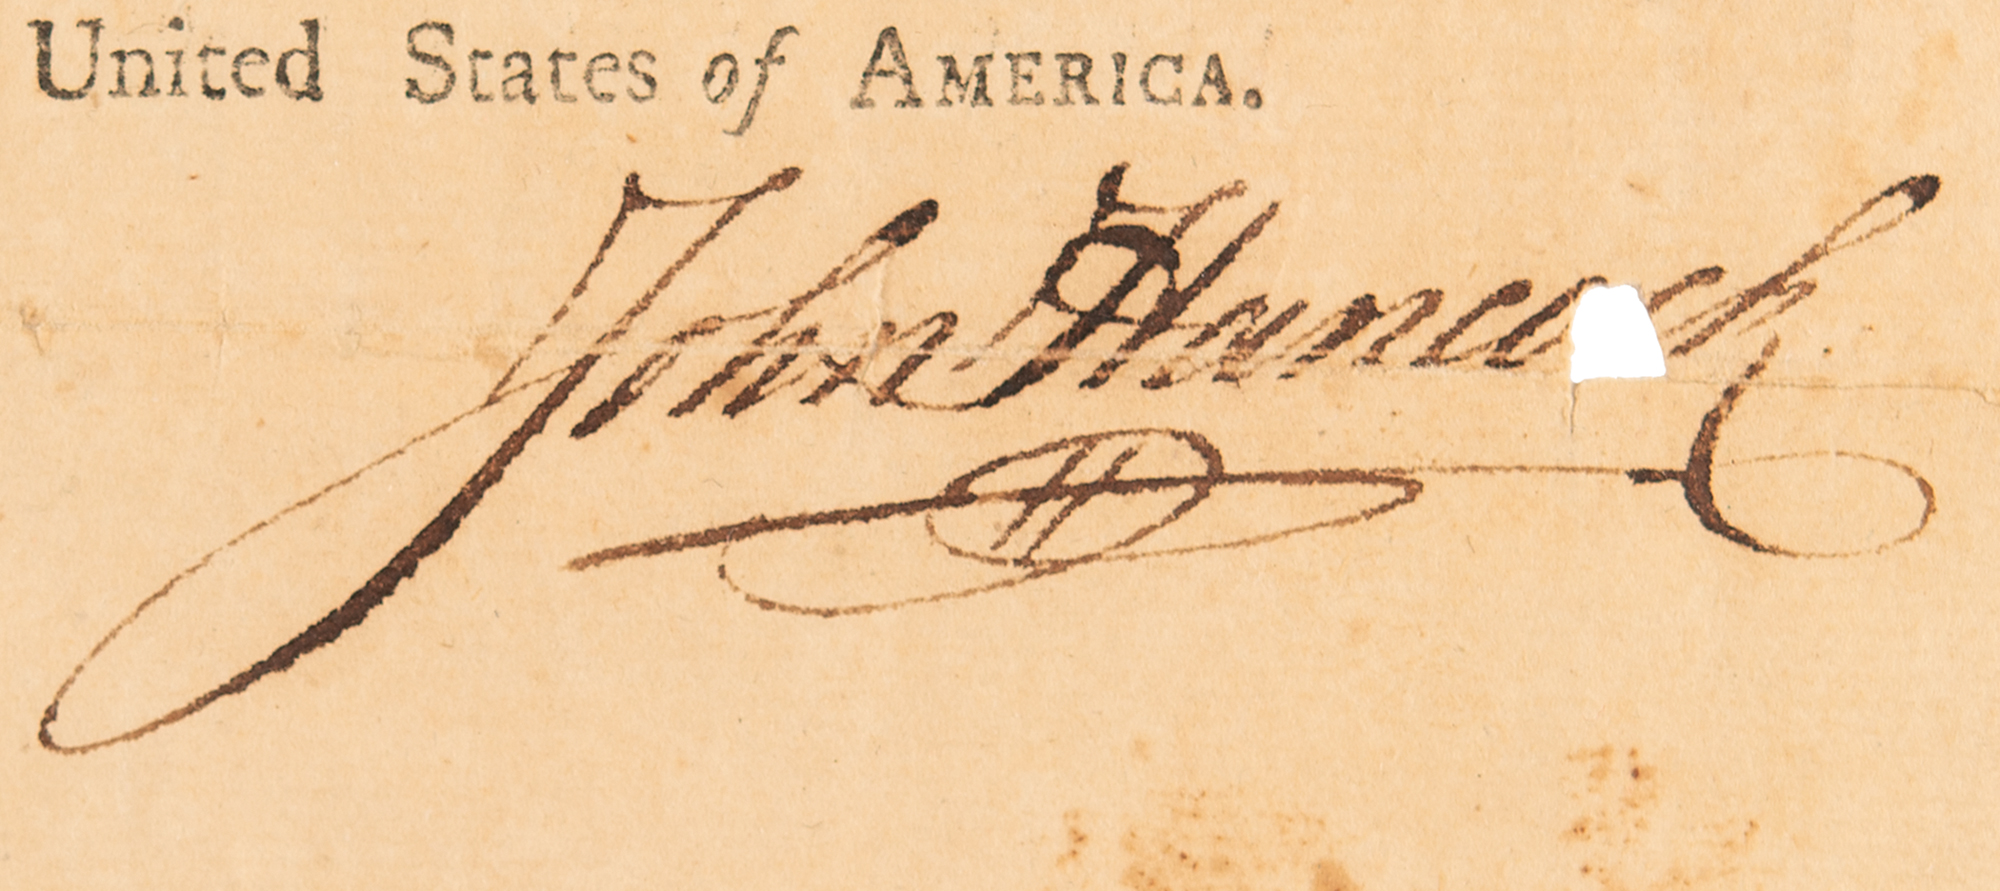 United States of AMERICA.
John Hancock